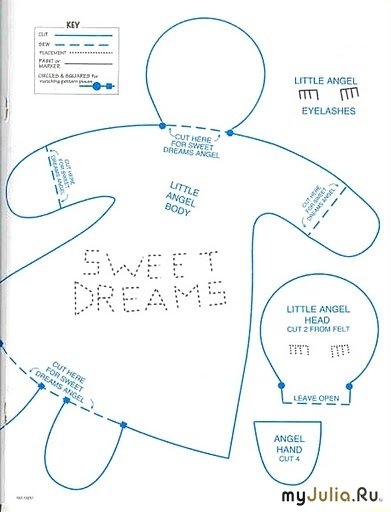 KEY
CUT
SEW
PLACEMENT
PAINT or
MARKER
CIRCLES & SQUARES for
matching pattern pieces
LITTLE ANGEL
EYELASHES
CUT HERE
FOR SWEET
DREAMS ANGEL
CUT HERE
FOR SWEET
DREAMS ANGEL
LITTLE
ANGEL
BODY
CUT HERE
FOR SWEET
DREAMS ANGEL
SWEET
DREAMS
LITTLE ANGEL
HEAD
CUT 2 FROM FELT
LEAVE OPEN
CUT HERE
FOR SWEET
DREAMS ANGEL
ANGEL
HAND
CUT 4
myJulia.Ru